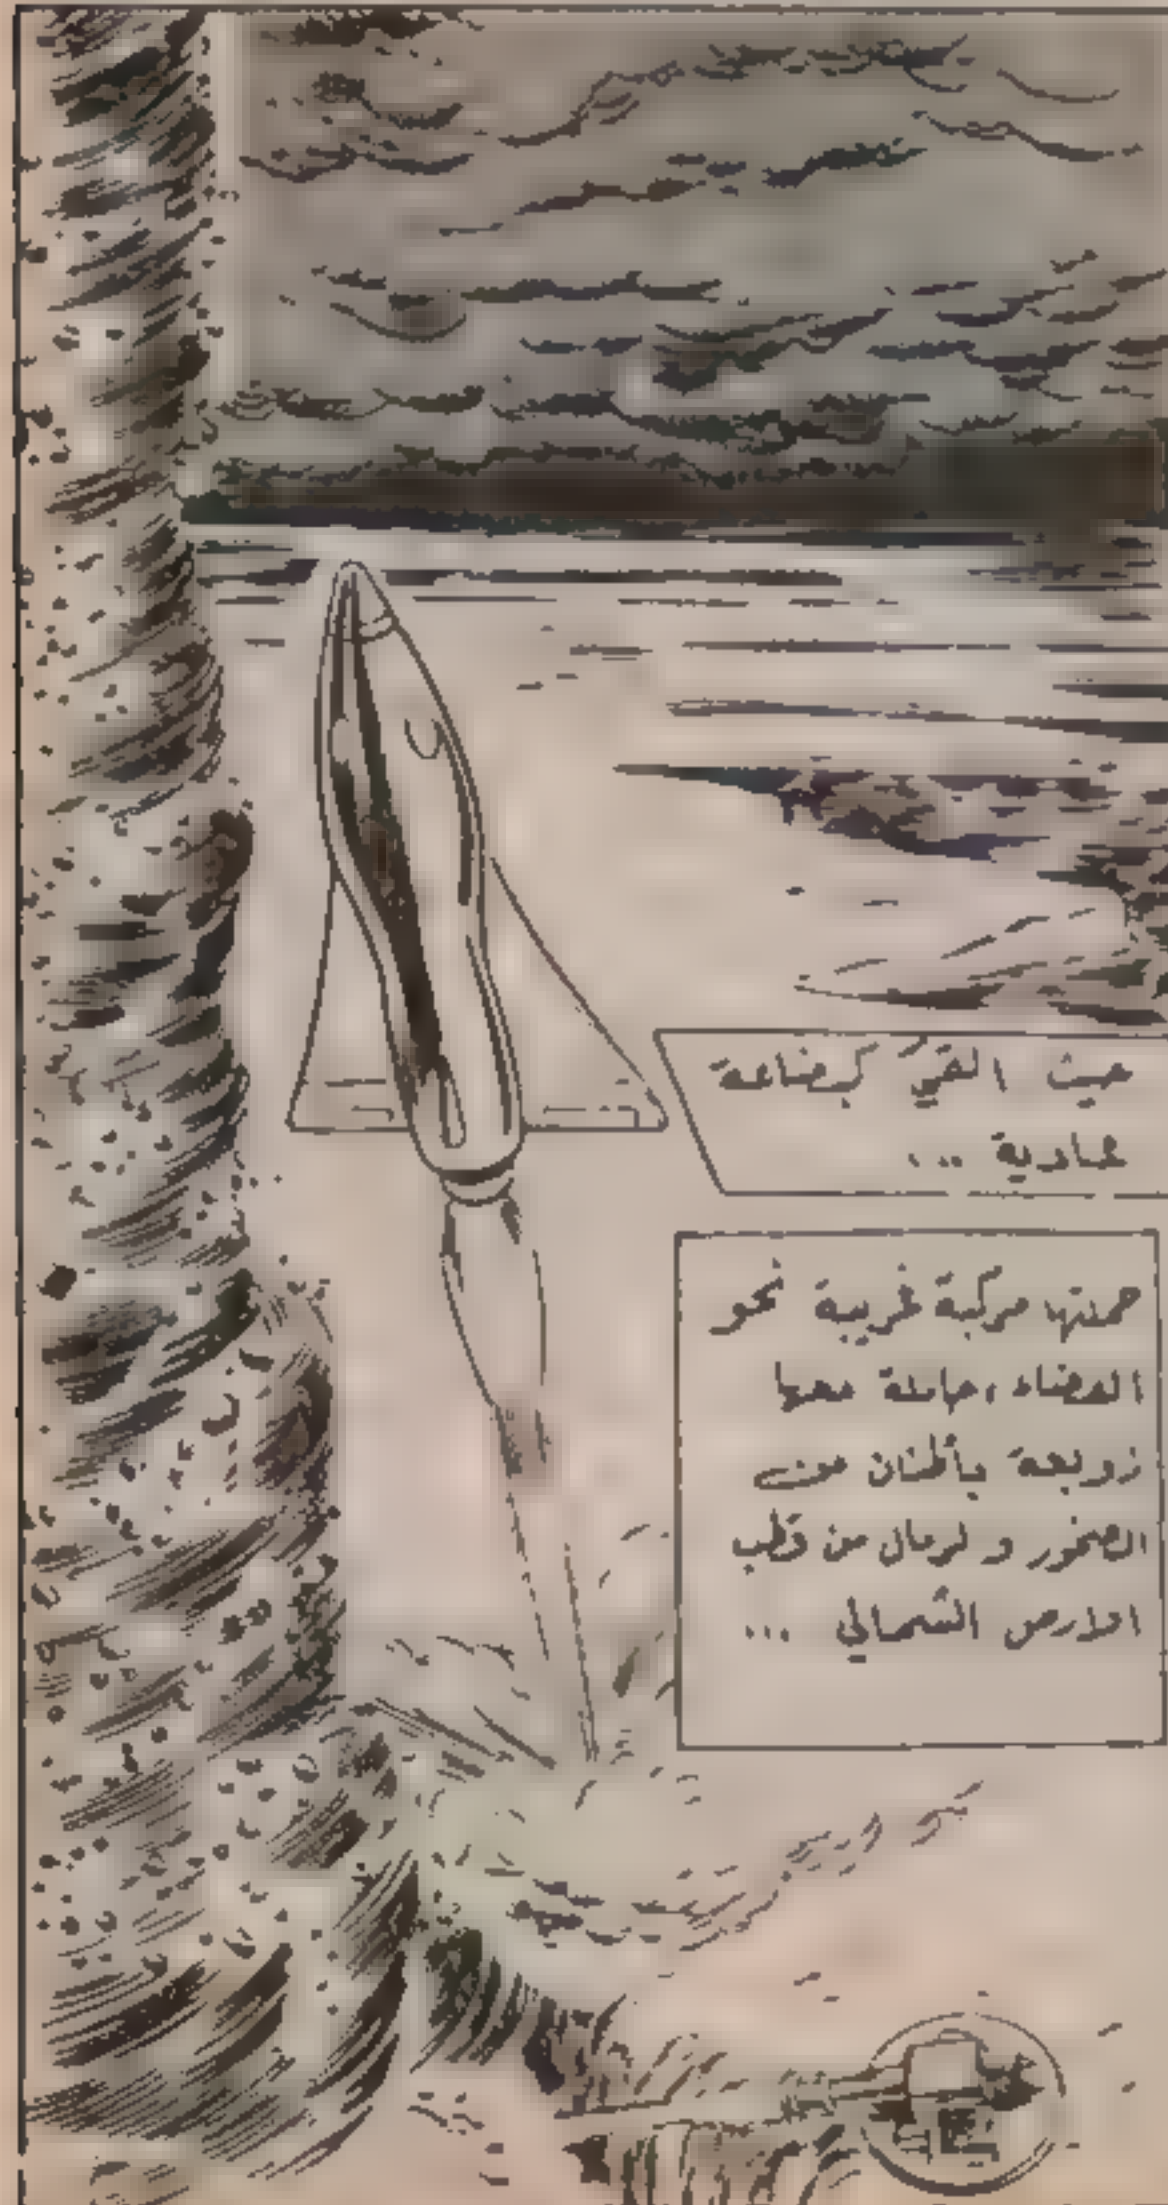 حيث القيَ كبضاعة
عادية ...
حملتها مركبة غريبة نحو
الفضاء ، حاملة معها
زوبعة بأطنان من
الصخور و لرمال من قطب
الارض الشمالي ...